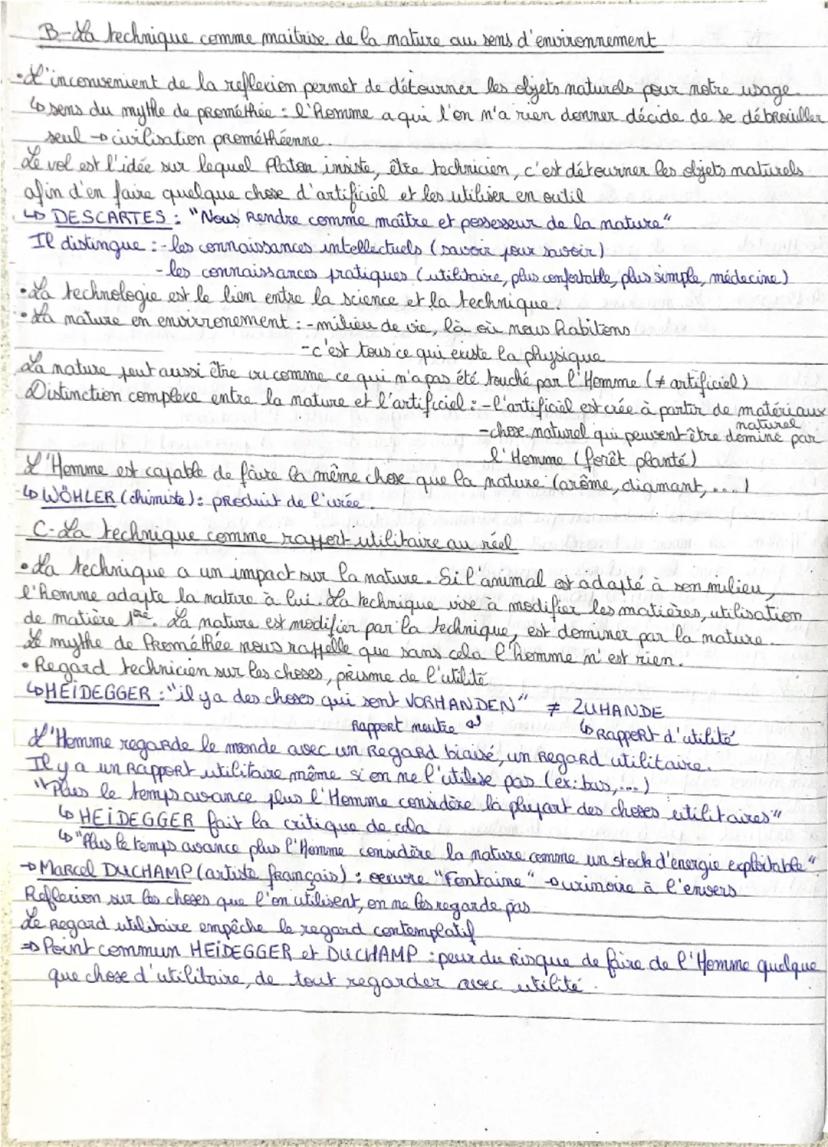 B-La technique comme maitrise de la nature au sens d'environnement
• L'inconvenient de la reflexion permet de détourner les objets naturels pour notre usage.
↳ sens du mythe de prométhée : l'Homme a qui l'on n'a rien donner décide de se débrouiller
seul → civilisation prométhéenne.
Le vol est l'idée sur lequel Platon insiste, être technicien, c'est détourner les objets naturels
afin d'en faire quelque chose d'artificiel et les utiliser en outil
↳ DESCARTES : "Nous Rendre comme maître et possesseur de la nature"
Il distingue : - les connaissances intellectuels (savoir pour savoir)
- les connaissances pratiques (utilitaire, plus confortable, plus simple, médecine)
• La technologie est le lien entre la science et la technique.
• La nature en environnement : - milieu de vie, là où nous habitons
- c'est tous ce qui existe la physique
La nature peut aussi être vu comme ce qui n'a pas été touché par l'Homme (≠ artificiel)
Distinction complexe entre la nature et l'artificiel : - l'artificiel est crée à partir de matériaux
naturel
- chose naturel qui peuvent être dominé par
l'Homme (forêt planté)
L'Homme est capable de faire la même chose que la nature (arôme, diamant, ...)
↳ WÖHLER (chimiste) : produit de l'urée.
C-La technique comme rapport utilitaire au réel
• La technique a un impact sur la nature. Si l'animal est adapté à son milieu,
l'Homme adapte la nature à lui. La technique vise à modifier les matières, utilisation
de matière 1ère. La nature est modifier par la technique, est dominer par la nature.
Le mythe de Prométhée nous rappelle que sans cela l'homme n'est rien.
• Regard technicien sur les choses, prisme de l'utilité
↳ HEIDEGGER : "il y a des choses qui sont VORHANDEN" ≠ ZUHANDE
Rapport neutre ↲ ↳ Rapport d'utilité
L'Homme regarde le monde avec un Regard biaisé, un Regard utilitaire.
Il y a un Rapport utilitaire même si on ne l'utilise pas (ex: bus, ...)
"Plus le temps avance plus l'Homme considère la plupart des choses utilitaires"
↳ HEIDEGGER fait la critique de cela
↳ "Plus le temps avance plus l'Homme considère la nature comme un stock d'énergie exploitable"
→ Marcel DUCHAMP (artiste français) : oeuvre "Fontaine" → urinoire à l'envers
Réflexion sur les choses que l'on utilisent, on ne les regarde pas
Le Regard utilitaire empêche le regard contemplatif
⇒ Point commun HEIDEGGER et DUCHAMP : peur du Risque de faire de l'Homme quelque
que chose d'utilitaire, de tout regarder avec utilité.